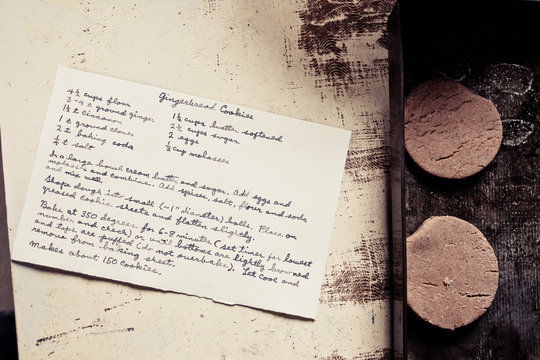 Gingerbread Cookies
4½ cups flour
3-4 t ground ginger
1½ t cinnamon
1 t ground cloves
2 t baking soda
¼ t salt
1½ cups butter softened
2½ cups sugar
2 eggs
½ cup molasses
In a large bowl cream butter and sugar. Add eggs and
molasses and combine. Add spices, salt, flour and soda
and mix well.
Shape dough into small (~1" diameter) balls. Place on
greased cookie sheets and flatten slightly.
Bake at 350 degrees for 6-9 minutes (set timer for lowest
number and check) or until bottoms are lightly browned
and tops are puffed (do not overbake). Let cool and
remove from baking sheet.
Makes about 150 cookies.